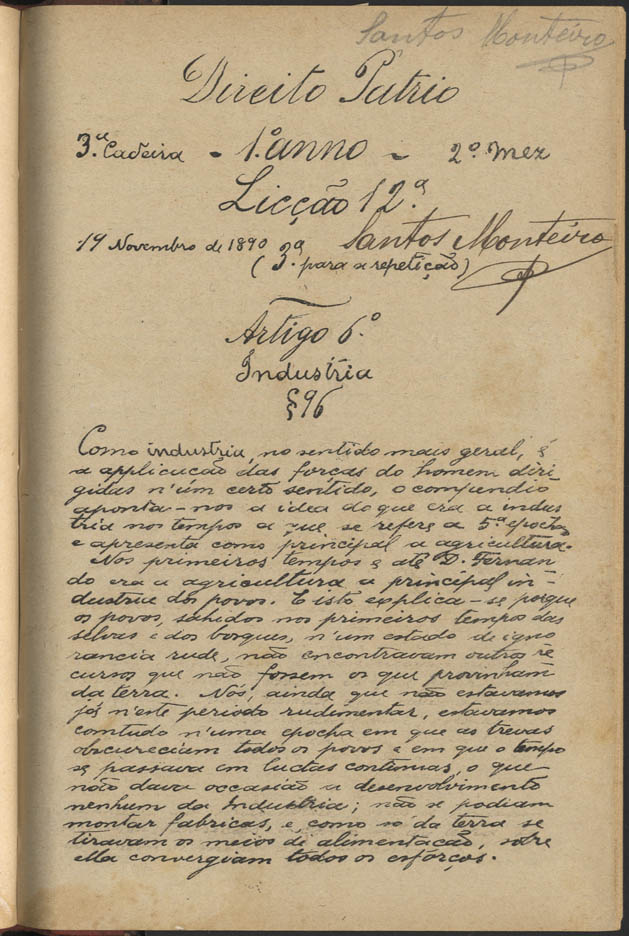 Santos Monteiro
Direito Patrio
3.ª Cadeira - 1.º anno - 2.º mez
Licção 12.ª
19 Novembro de 1890 Santos Monteiro
(3.ª para a repetição)
Artigo 6.º
Industria
§ 96
Como industria, no sentido mais geral, é
a applicacão das forças do homem diri-
gidas n'um certo sentido, o compendio
aponta-nos a idea do que era a indus
tria nos tempos a que se refere a 5ª epocha
e apresenta como principal a agricultura.
Nos primeiros tempos e até D. Fernan
do era a agricultura a principal in-
dustria dos povos. E isto explica-se porque
os povos, sahidos nos primeiros tempos das
selvas e dos bosques, n'um estado de igno
rancia rude, não encontravam outros re
cursos que não fossem os que provinham
da terra. Nós, ainda que não estavamos
já n'este periodo rudimentar, estavamos
comtudo n'uma epocha em que as trevas
obscureciam todos os povos e em que o tempo
se passava em luctas continuas, o que
não dava occasião a desenvolvimento
nenhum da Industria; não se podiam
montar fabricas, e, como só da terra se
tiravam os meios de alimentação, sobre
ella convergiam todos os esforços.